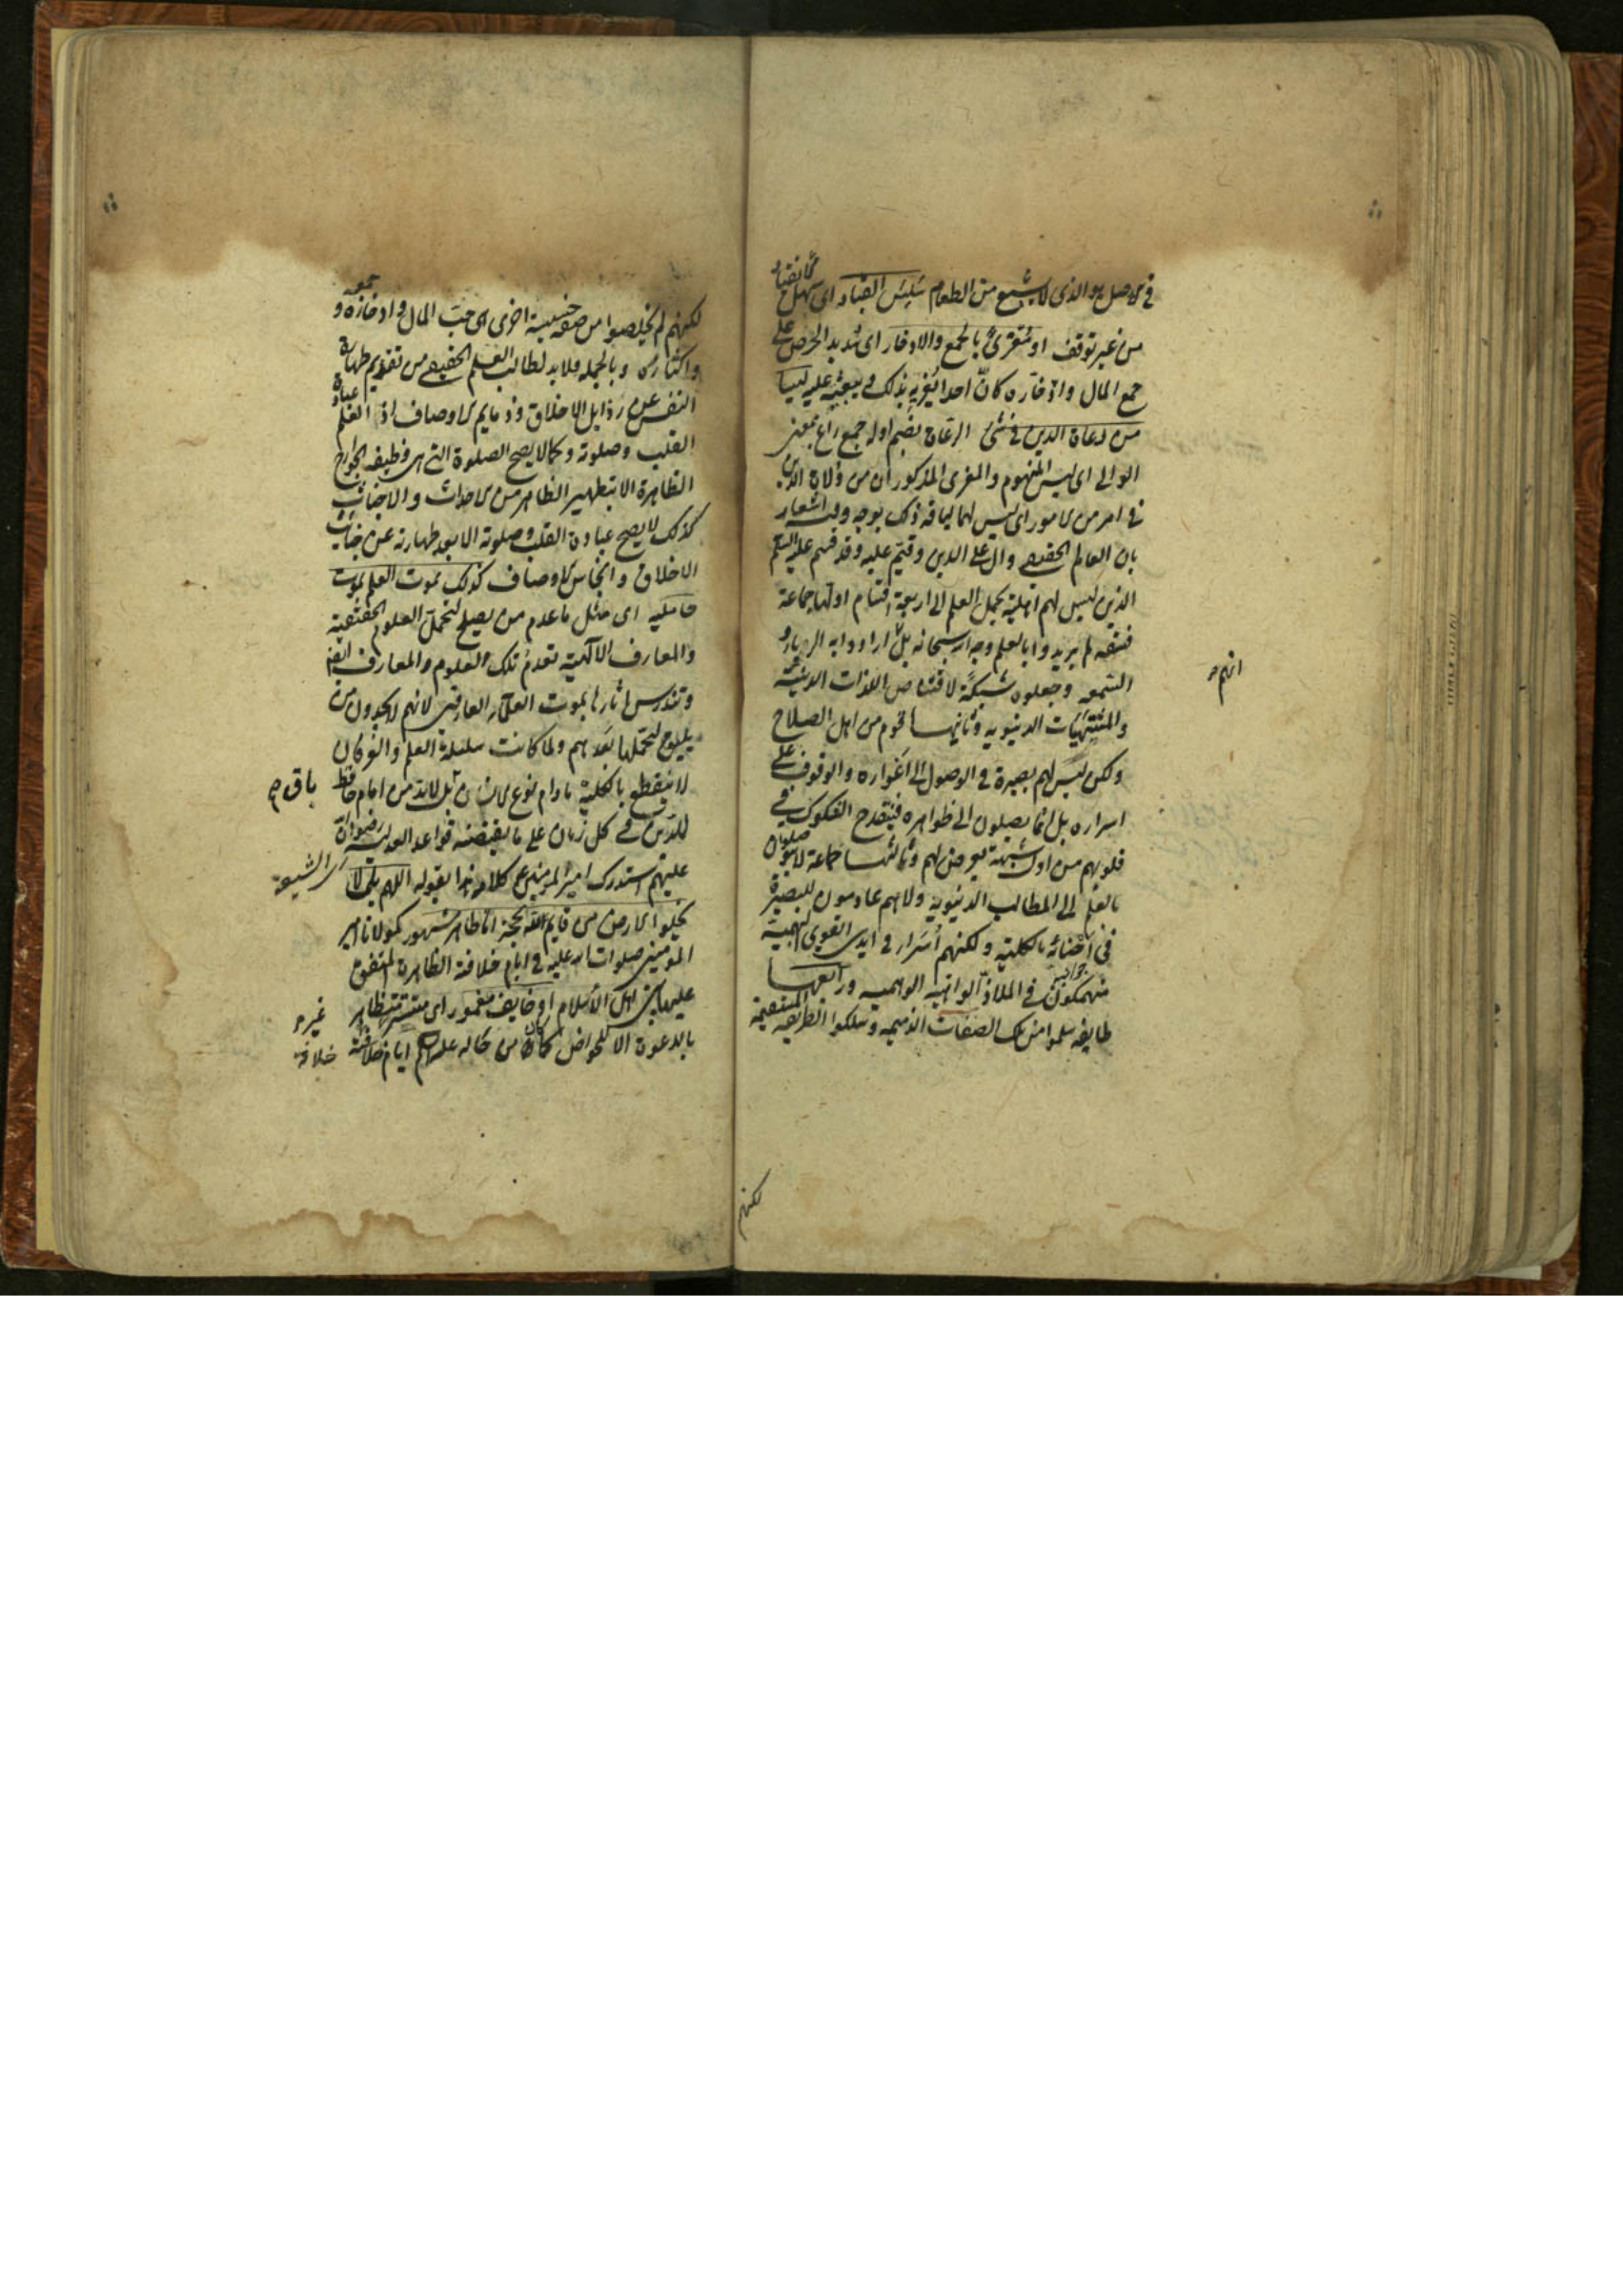 في الاصل هو الذي لا يشبع من الطعام سلس القياد اي سهل الانقياد
من غير توقف او مغرى بالجمع والادخار اي شديد الحرص على
جمع المال وادخاره كان احدا يغريه بذلك ويبعثه عليه ليسا
من رعاة الدين في شئ الرعاة بضم اوله جمع راع بمعنى
الوالي اي ليس المنهوم والمغرى المذكوران من ولاة الدين
في امر من الامور اي ليس لهما لياقة ذلك بوجه وفيه اشعار
بان العالم الحقيقي وال على الدين وقيم عليه وقد قسم عليه السلم
الذين ليس لهم اهلية تحمل العلم الى اربعة اقسام اولها جماعة
فسقة لم يريدوا بالعلم وجه الله سبحانه بل ارادوا به الرياء و
السمعه وجعلوه شبكة لاقتناص اللذات الدنية
والمشتهيات الدنيويه وثانيها قوم من اهل الصلاح
ولكن ليس لهم بصيرة في الوصول الى اغواره والوقوف على
اسراره بل انما يصلون الى ظواهره فينقدح الشكوك في
قلوبهم من اول شبهة يعرض لهم وثالثها جماعة لا يتوصلون
بالعلم الى المطالب الدنيويه ولا هم عادمون للبصيرة
في احنائه بالكلية ولكنهم اسراء في ايدي القوى البهيمية
منهمكون في الملاذ الواهية الوهميه ورابعها
طايفه سلموا من تلك الصفات الذميمه وسلكوا الطريقه المستقيمة
انهم
لكنهم
لكنهم لم يخلصوا من صفة خسيسة اخرى اي حب المال وادخاره و جمعه
واكثاره وبالجمله فلا بد لطالب العلم الحقيقي من تقديم طهارة
النفس عن رذايل الاخلاق وذمايم الاوصاف اذ العلم عبادة
القلب وصلوته وكما لا يصح الصلوة التي هي وظيفه الجوارح
الظاهرة الا بتطهير الظاهر من الاحداث والاخباث
كذلك لا يصح عبادة القلب وصلوته الا بعد طهارته عن خبائث
الاخلاق وانجاس الاوصاف كذلك يموت العلم بموت
حامليه اي مثل ما عدم من يصلح لتحمل العلوم الحقيقية
والمعارف الالهية تعدم تلك العلوم والمعارف ايضا
وتندرس اثارها بموت العلماء العارفين لانهم لا يجدون من
يليق لتحملها بعدهم ولما كانت سلسلة العلم والعرفان
لا ينقطع بالكلية ما دام نوع الانسان باق بل لابد من امام حافظ
للدين في كل زمان على ما يقتضيه قواعد العدلية رضوان الله
عليهم استدرك امير المومنين ع كلامه هذا بقوله اللهم بلى لا
اى الشيعة
يخلو الارض من قايم لله بحجة اما ظاهر مشهور كمولانا امير
المومنين صلوات الله عليه في ايام خلافته الظاهرة المتفق
عليها بين اهل الاسلام او خايف مغمور اي مستتر غير متظاهر
بالدعوة الا للخواص كما كان من حاله عليه السلم ايام خلافة